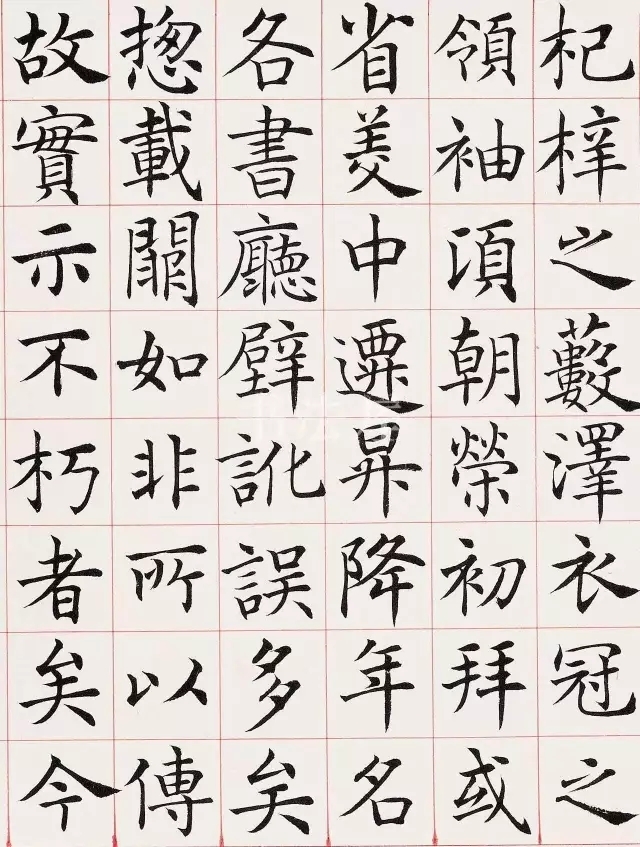 杞梓之藪澤衣冠之
領袖湏朝榮初拜或
省美中遷昇降年名
各書廳壁訛誤多矣
揔載闕如非所以傳
故實示不朽者矣今